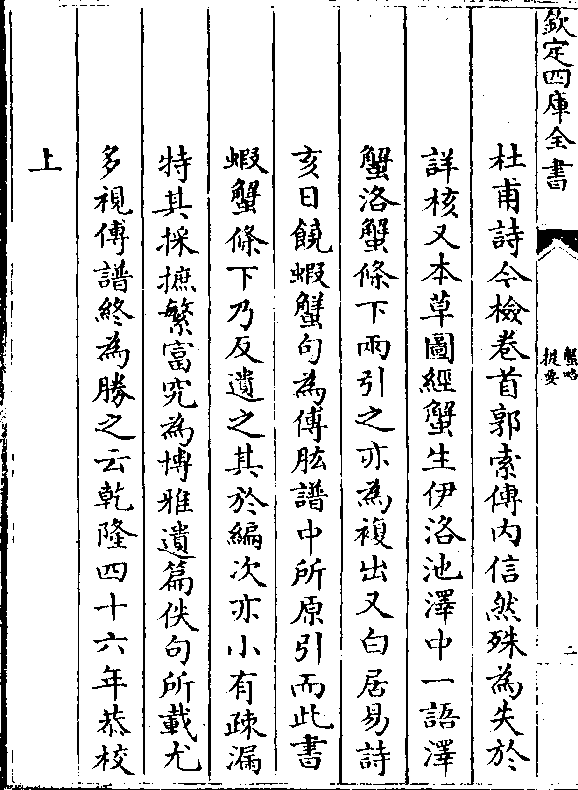 欽定四庫全書
蟹略
提要
二
杜甫詩今檢卷首郭索傳内信然殊為失於
詳核又本草圖經蟹生伊洛池澤中一語澤
蟹洛蟹條下兩引之亦為複出又白居易詩
亥日饒蝦蟹句為傅肱譜中所原引而此書
蝦蟹條下乃反遺之其於編次亦小有疎漏
特其採摭繁富究為博雅遺篇佚句所載尤
多視傅譜終為勝之云乾隆四十六年恭校
上